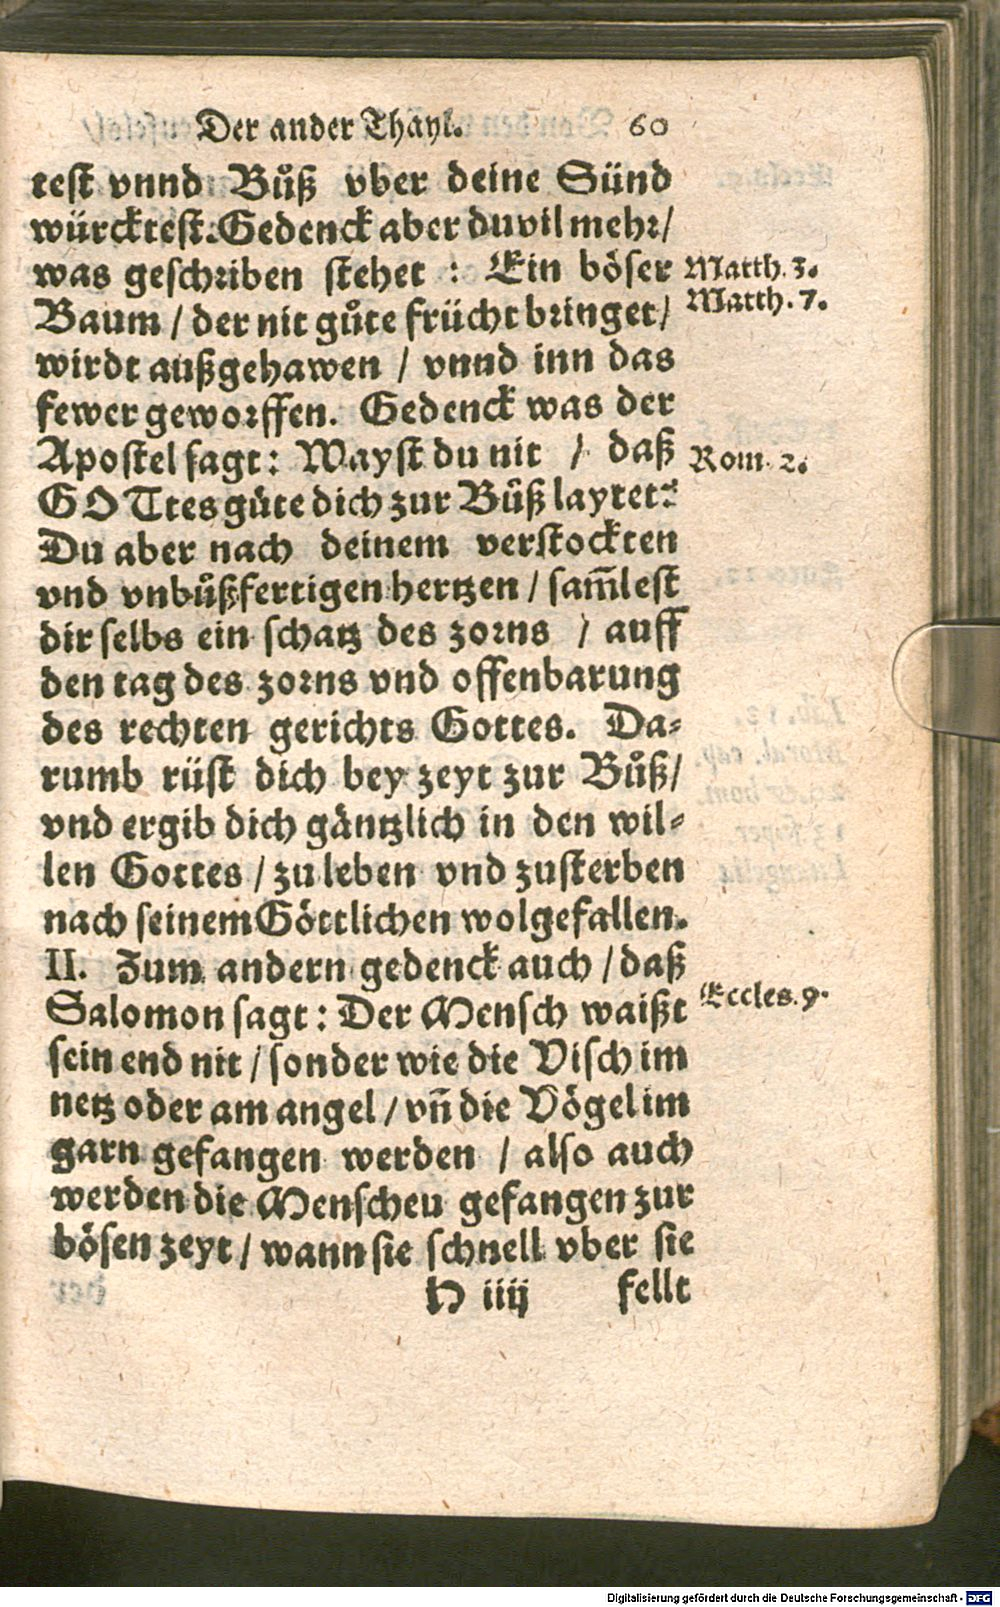 Der ander Thayl. 60
test vnnd Bůß vber deine Sünd
würcktest. Gedenck aber du vil mehr/
was geschriben stehet : Ein böser
Matth. 3.
Baum / der nit gůte frücht bringet/
Matth. 7.
wirdt außgehawen / vnnd inn das
fewer geworffen. Gedenck was der
Apostel sagt: Wayst du nit / daß
Rom. 2.
GOTtes gůte dich zur Bůß laytet?
Du aber nach deinem verstockten
vnd vnbůßfertigen hertzen / sam̃lest
dir selbs ein schatz des zorns / auff
den tag des zorns vnd offenbarung
des rechten gerichts Gottes. Da-
rumb rüst dich bey zeyt zur Bůß/
vnd ergib dich gäntzlich in den wil-
len Gottes / zu leben vnd zusterben
nach seinem Göttlichen wolgefallen.
II. Zum andern gedenck auch / daß
Salomon sagt : Der Mensch waißt
Eccles. 9.
sein end nit / sonder wie die Visch im
netz oder am angel / vñ die Vögel im
garn gefangen werden / also auch
werden die Menscheu gefangen zur
bösen zeyt / wann sie schnell vber sie
H iiij fellt
Digitalisierung gefördert durch die Deutsche Forschungsgemeinschaft - DFG